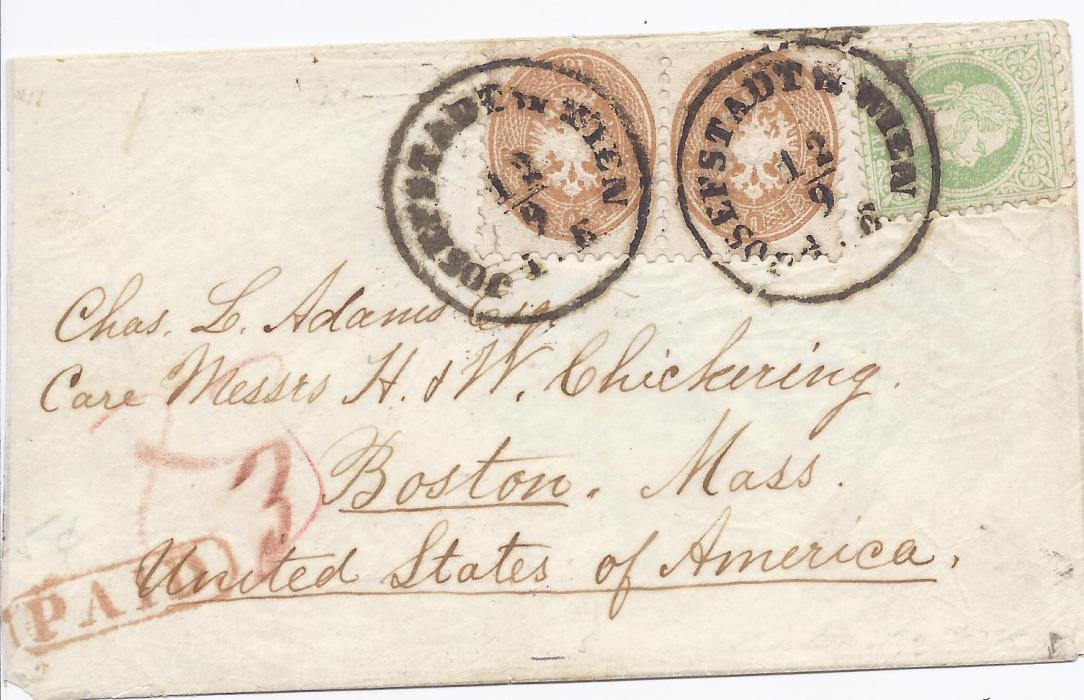 JOSEFSTADT in WIEN
12/9
JOSEFSTADT in WIEN
12/9
Chas. L. Adams Esq.
Care Messrs H. & W. Chickering.
Boston. Mass.
United States of America.
3
PAID